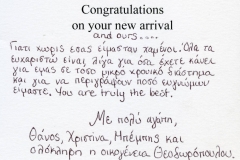 Congratulations
on your new arrival
and ours....
Γιατί χωρίς εσας είμασταν χαμένοι. Όλα τα
ευχαριστώ είναι λίγα για όσα έχετε κάνει
για εμάς σε τόσο μικρό χρονικό διάστημα
και για να περιγράψουν πόσο ευγνώμων
είμαστε. You are truly the best.
Με πολύ αγάπη,
Θάνος, Χριστίνα, Μπέμπης και
ολόκληρη η οικογένεια Θεοδωρόπουλου.